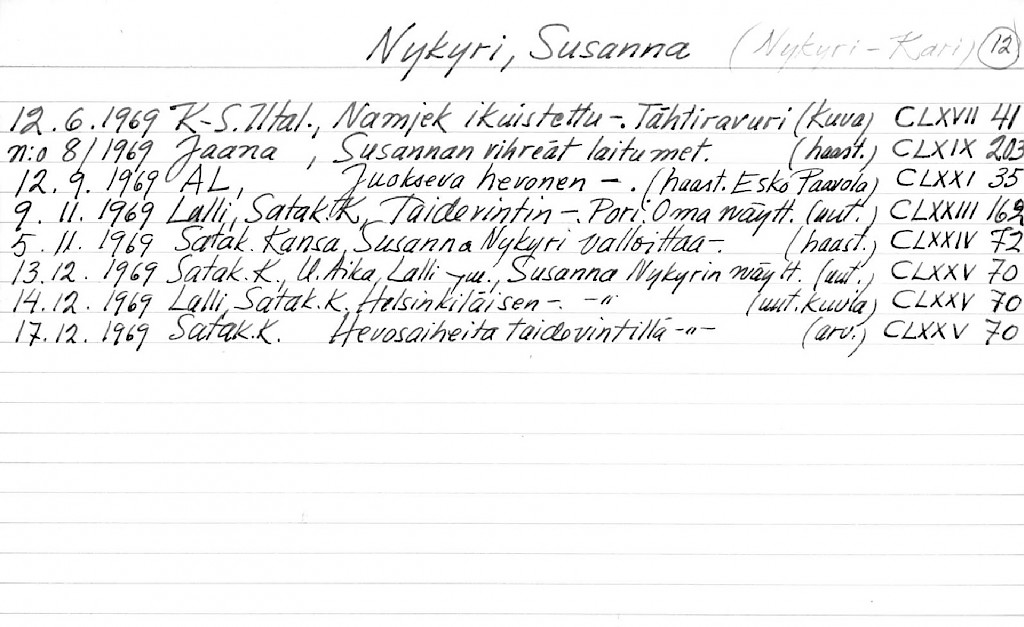 Nykyri, Susanna (Nykyri-Kari) 12
12.6.1969 K-S. Iltal., Namjek ikuistettu-. Tähtiravuri (kuva) CLXVII 41
n:o 8/1969 Jaana , Susannan vihreät laitumet. (haast.) CLXIX 203
12.9.1969 AL, Juokseva hevonen -. (haast. Esko Paavola) CLXXI 35
9.11.1969 Lalli, Satak.K, Taidevintin-. Pori: Oma näytt. (uut.) CLXXIII 162
5.11.1969 Satak. Kansa, Susanna Nykyri valloittaa-. (haast.) CLXXIV 72
13.12.1969 Satak.K., U.Aika, Lalli ym., Susanna Nykyrin näytt. (uut.) CLXXV 70
14.12.1969 Lalli, Satak.K, Helsinkiläisen-. -"- (uut.kuvla) CLXXV 70
17.12.1969 Satak.K. Hevosaiheita taidevintillä -"- (arv.) CLXXV 70